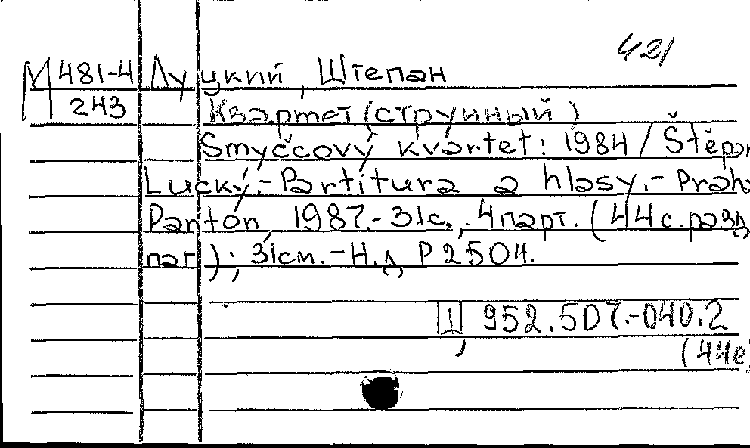 421
М 481-4 Луцкий, Штепан
243 Квартет (струнный)
Smyčcový kvartet: 1984 / Štěpán
Lucký.- Partitura a hlasy.- Praha
Panton, 1987.- 31с., 4 парт. (44 с. разд
паг); 31см. - Н.д. Р 2504.
Ш 952.5D7.-040.2
(44е)